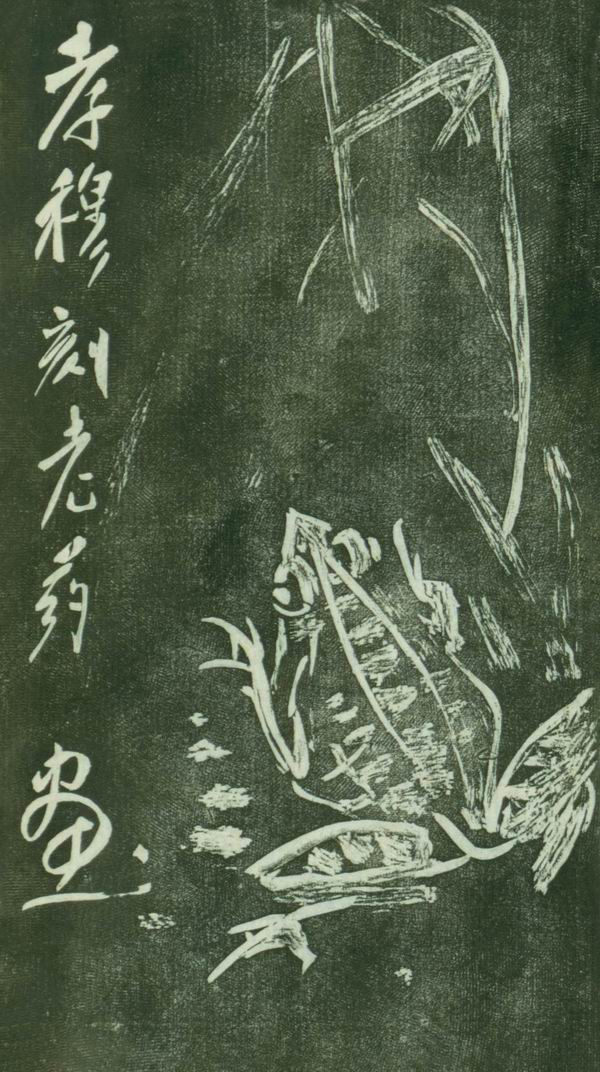 孝穆刻老药畫